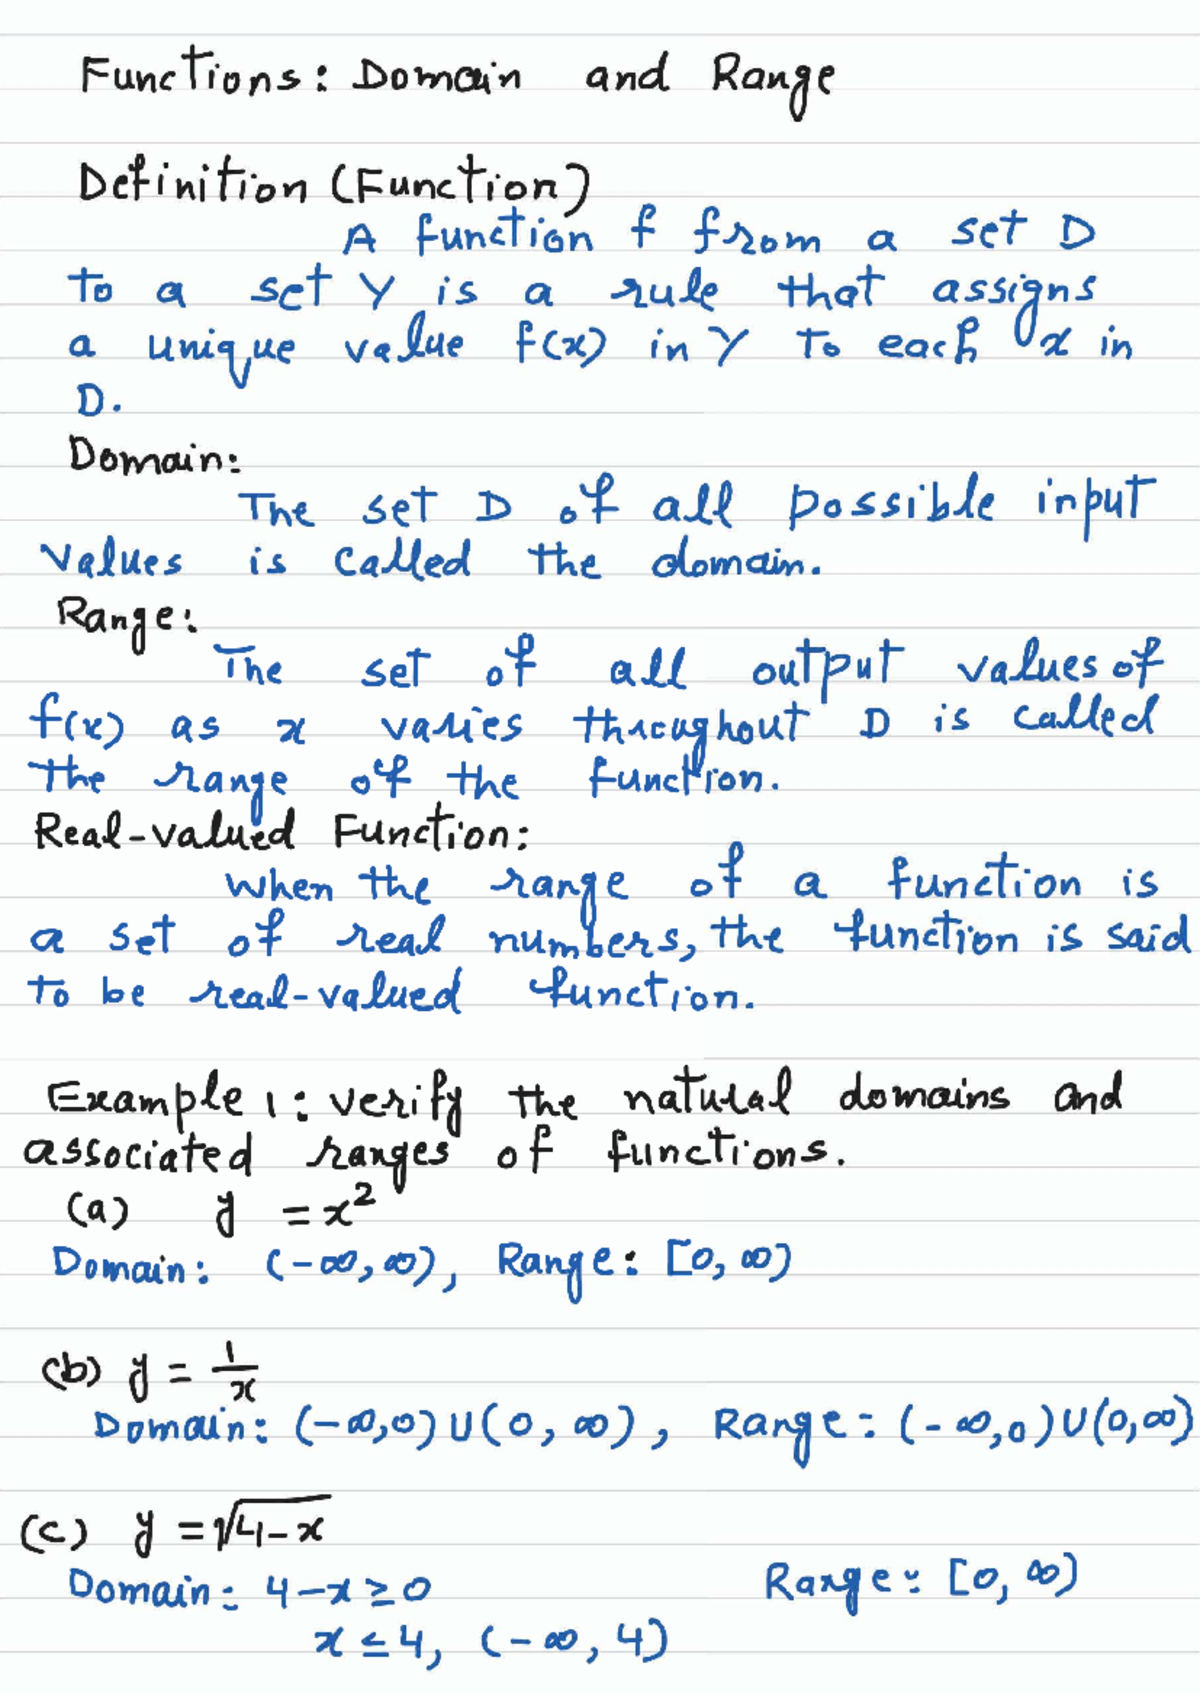 Functions: Domain and Range
Definition (Function)
A function f from a set D
to a set Y is a rule that assigns
a unique value f(x) in Y to each x in
D.
Domain:
The set D of all possible input
values is called the domain.
Range:
The set of all output values of
f(x) as x varies throughout D is called
the range of the function.
Real-valued Function:
When the range of a function is
a set of real numbers, the function is said
to be real-valued function.
Example 1: verify the natural domains and
associated ranges of functions.
(a) y = x²
Domain: (-∞, ∞), Range: [0, ∞)
(b) y = 1/x
Domain: (-∞,0) U (0, ∞), Range: (-∞,0) U (0,∞)
(c) y = √4-x
Domain: 4-x ≥ 0 Range: [0, ∞)
x ≤ 4, (-∞, 4)